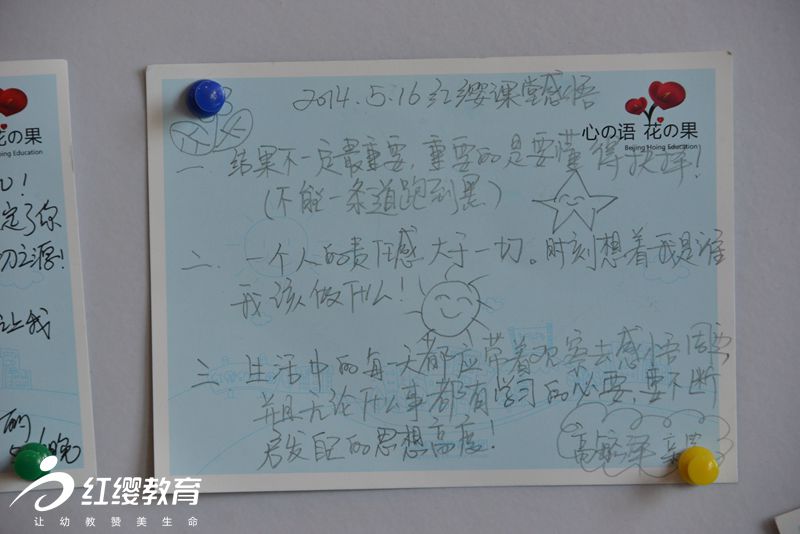 2014.5.16 红缨课堂感悟
心の语 花の果
Beijing Hoing Education
一、结果不一定最重要,重要的是要懂得抉择!
(不能一条道跑到黑)
二、一个人的责任感大于一切。时刻想着我是谁
我该做什么!
三、生活中的每天都应带着观察去感悟周围
并且无论什么事都有学习的必要,要不断
发自己的思想高度!
花の果
Being Education
!
定了你
让我
的
晚
红缨教育
让幼教赞美生命